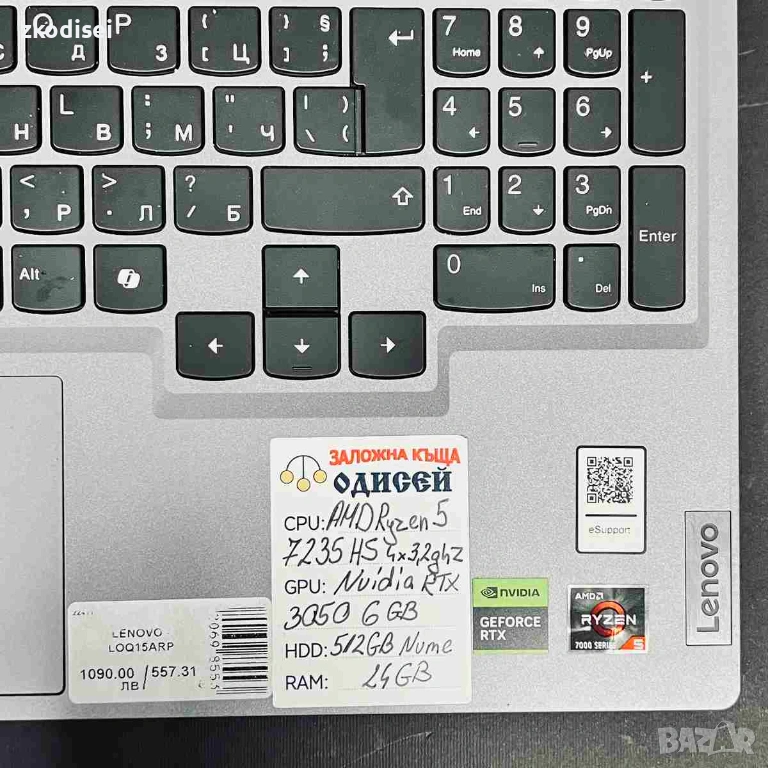 zkodisei
O P § 7 8 9
Д З [ Ц ] ; Home PgUp +
L 4 5 6
Н " В : ; М " ' Ч | \ ) (
< , Р > . Л ? / Б 1 2 3
End PgDn
Enter
Alt 0 .
Ins Del
ЗАЛОЖНА КЪЩА
ОДИСЕЙ
CPU: AMD Ryzen 5
7235 HS 4x3,2ghz
GPU: Nvidia RTX
3050 6 GB
HDD: 512GB Nvme
RAM: 24GB
LENOVO
LOQ15ARP
1090.00 / 557.31
ЛВ
eSupport
Lenovo
NVIDIA
GEFORCE
RTX
AMD
RYZEN
7000 SERIES 5
BAZAR